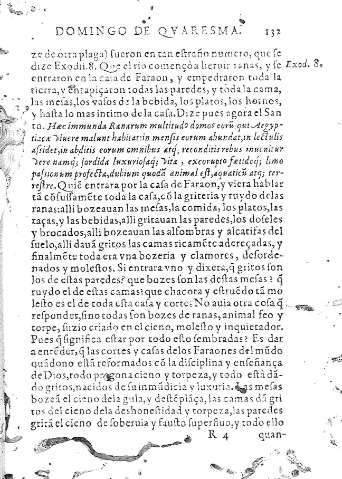 DOMINGO DE QVARESMA. 132
ze de otra plaga) fueron en tan estraño numero, que se
dize Exodi. 8. Que el rio començò a heruir ranas, y se
Exod. 8.
entraron en la casa de Faraon, y empedraron toda la
tierra, y entapiçaron todas las paredes, y toda la cama,
las mesas, los vasos de la bebida, los platos, los hornos,
y hasta lo mas intimo de la casa. Dize pues agora el San
to. Hæc immunda Ranarum multitudo domos eorũ qui Aegyp-
tiacè viuere malunt habitatrix mensis eorum abundat, in lectulis
assidet, in abditis eorum omnibus atq; reconditis rebus inuenitur
verè namq; sordida luxuriosaq; vita, ex corrupto fœdoq; limo
passionum profecta, dubium quoddã animal est, aquaticũ atq; ter-
restre. Quiẽ entrara por la casa de Faraon, y viera hablar
tã cõfusamẽte toda la casa, cõ la griteria y ruydo de las
ranas: alli bozeauan las mesas, la comida, los platos, las
taças, y las bebidas, alli gritauan las paredes, los doseles
y brocados, alli bozeauan las alfombras y alcatifas del
suelo, alli dauã gritos las camas ricamẽte adereçadas, y
finalmẽte toda era vna bozeria y clamores, desorde-
nados y molestos. Si entrara vno y dixera, q̃ gritos son
los de estas paredes? que bozes son las destas mesas? q̃
ruydo el de estas camas? que chacora y estruẽdo tã mo
lesto es el de toda esta casa y corte? No auia otra cosa q̃
responder, sino todas son bozes de ranas, animal feo y
torpe, suzio criado en el cieno, molesto y inquietador.
Pues q̃ significa estar por todo esto sembradas? Es dar
a entẽder, q̃ las cortes y casas de los Faraones del mũdo
quãdo no està reformados cõ la disciplina y enseñança
de Dios, todo pregona cieno y torpeza, y todo està dã-
do gritos, nacidos de su inmũdicia y luxuria. Las mesas
bozeã el cieno de la gula, y destẽplãça, las camas dã gri
tos del cieno de la deshonestidad y torpeza, las paredes
gritã el cieno de soberuia y fausto superfluo, y todo ello
R 4 quan-